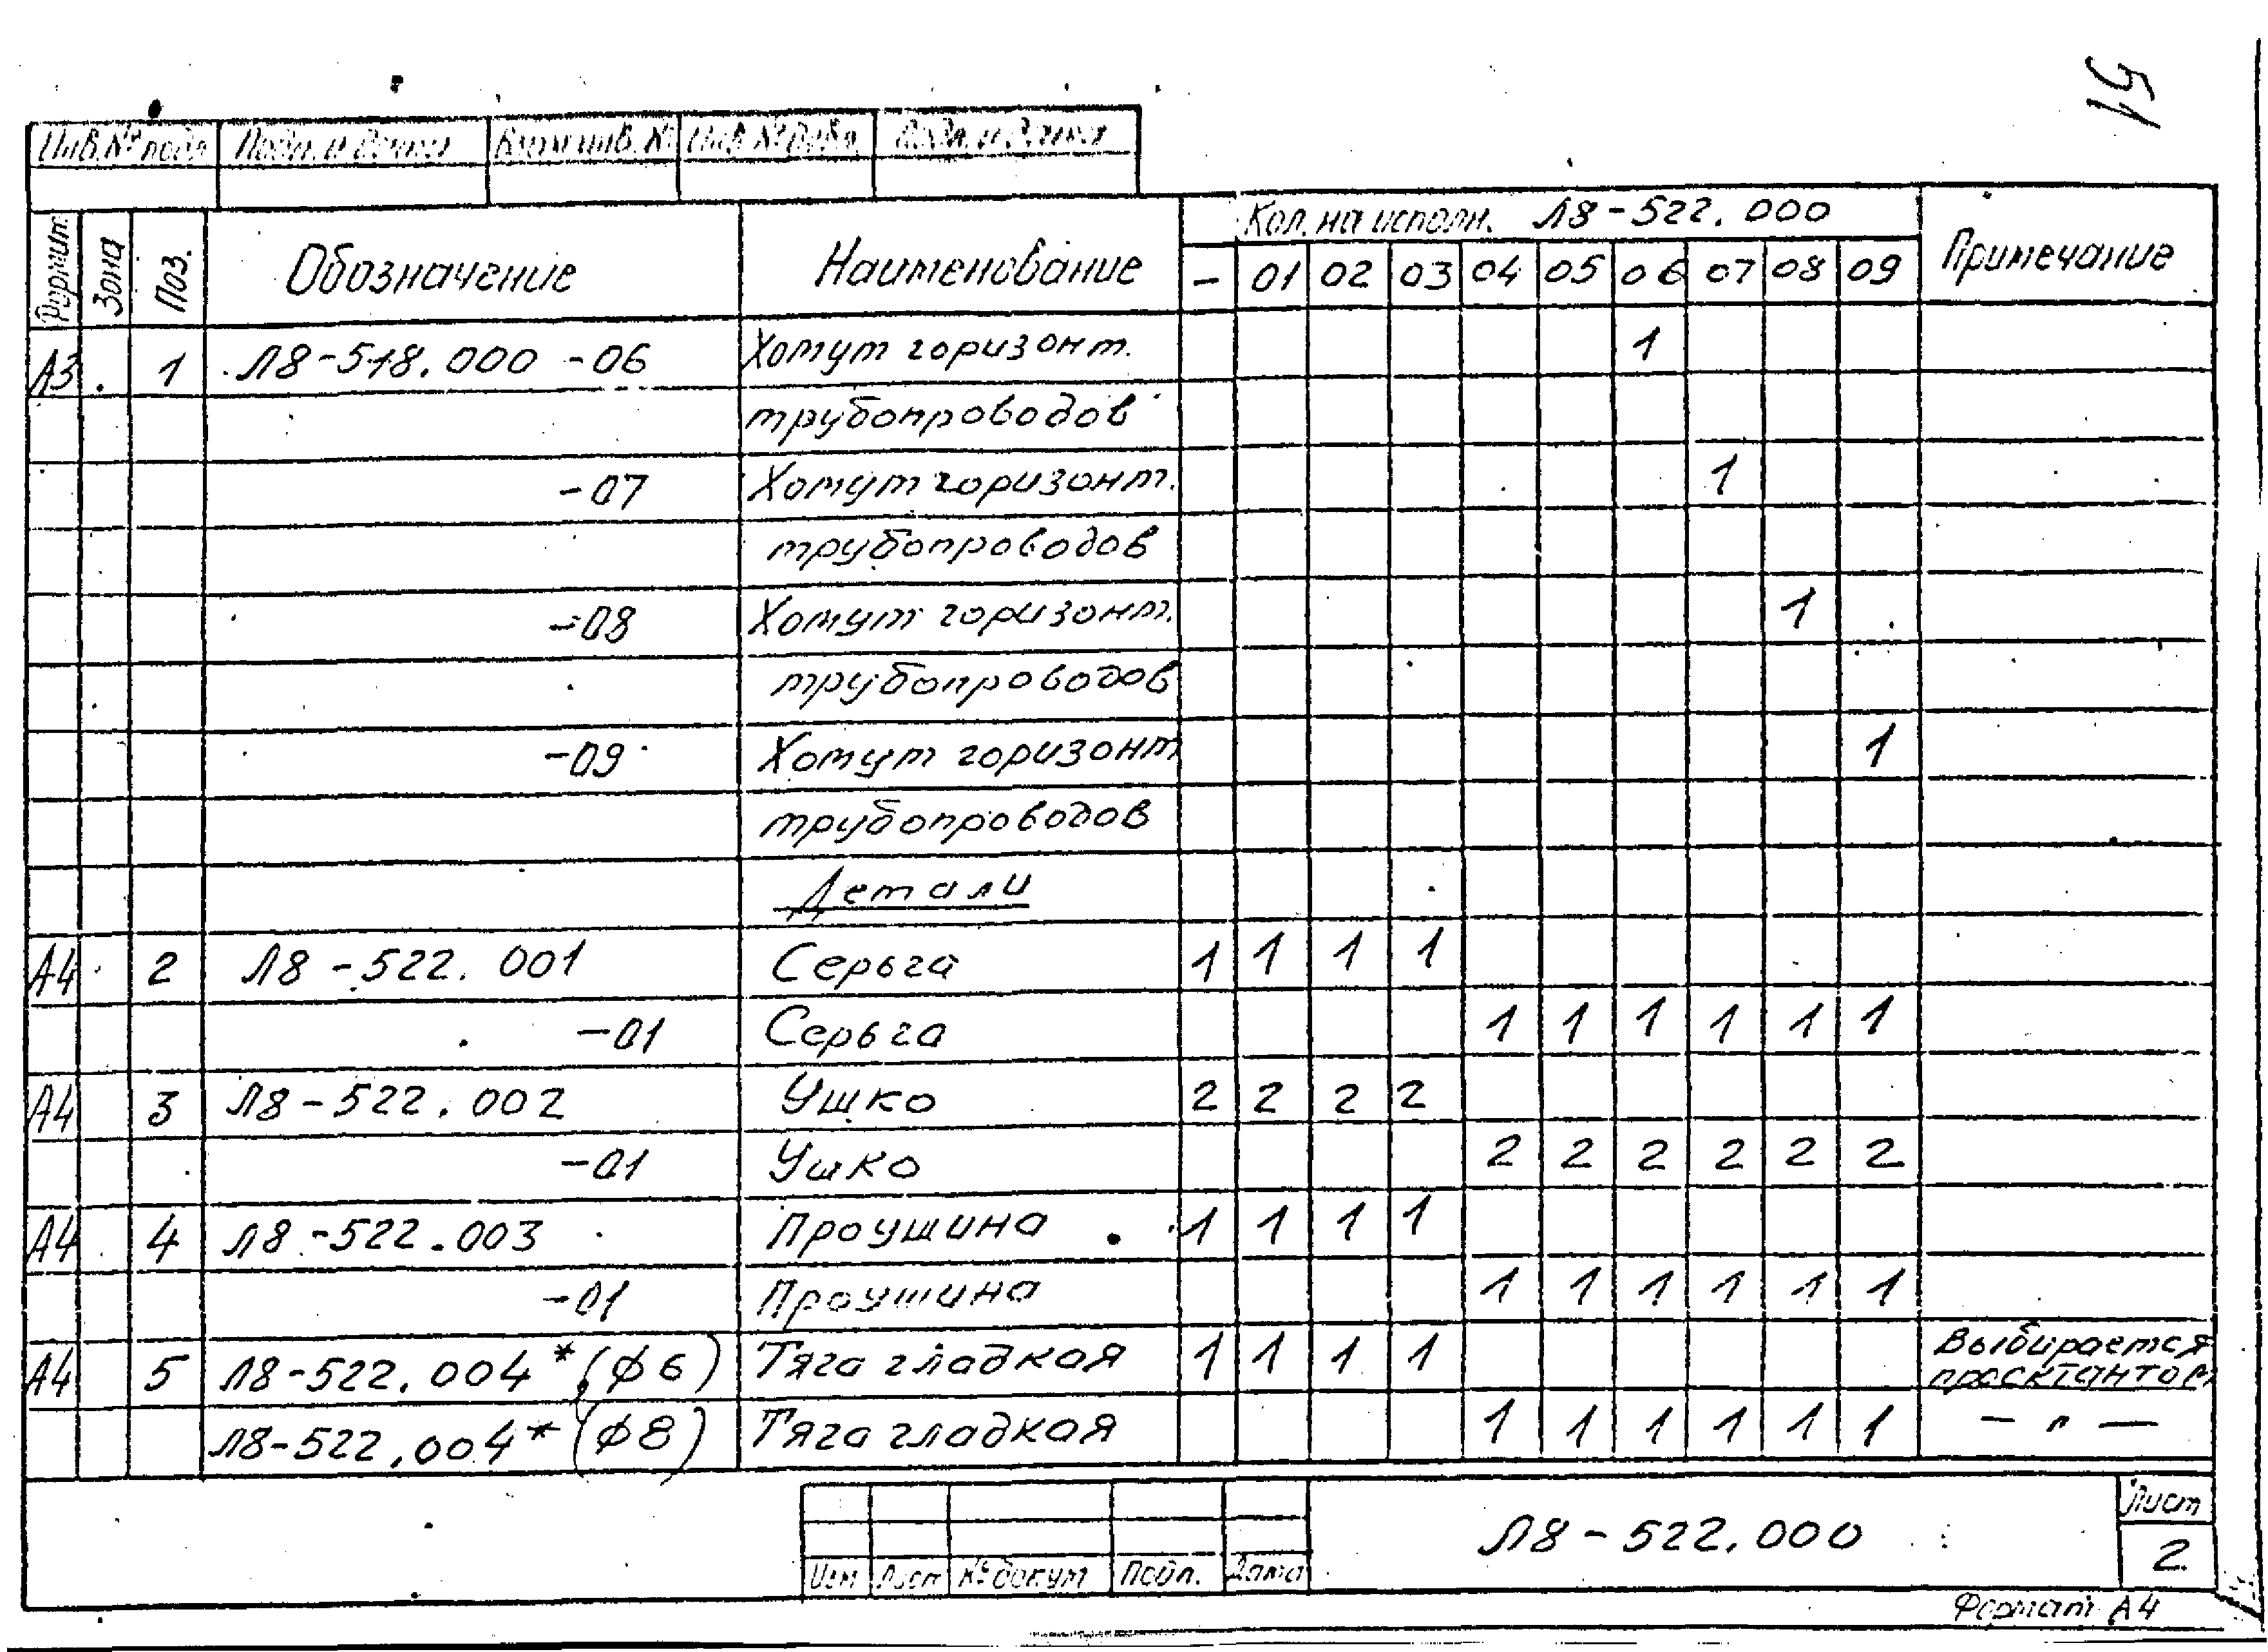 51
Инв. № подл. Подп. и дата Взам. инв. № Инв. № дубл. Подп. и дата
Формат Зона Поз. Обозначение Наименование Кол. на исполн. Л8-522.000 Примечание
- 01 02 03 04 05 06 07 08 09
А3 1 Л8-518.000 -06 Хомут горизонт. 1
трубопроводов
-07 Хомут горизонт. 1
трубопроводов
-08 Хомут горизонт. 1
трубопроводов
-09 Хомут горизонт 1
трубопроводов
Детали
А4 2 Л8-522.001 Серьга 1 1 1 1
-01 Серьга 1 1 1 1 1 1
А4 3 Л8-522.002 Ушко 2 2 2 2
-01 Ушко 2 2 2 2 2 2
А4 4 Л8-522.003 Проушина 1 1 1 1
-01 Проушина 1 1 1 1 1 1
А4 5 Л8-522.004* (ф6) Тяга гладкая 1 1 1 1 Выбирается
проектантом
Л8-522.004* (ф8) Тяга гладкая 1 1 1 1 1 1 — " —
Изм Лист № докум Подп. Дата
Л8-522.000
Лист
2
Формат А4